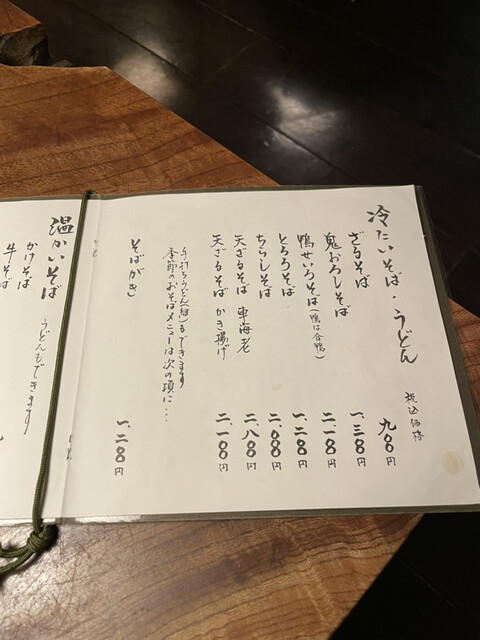 冷たいそば・うどん 税込価格
ざるそば 九〇〇円
鬼おろしそば 一、三〇〇円
鴨せいろそば(鴨は合鴨) 二、一〇〇円
とろろそば 一、二〇〇円
ちらしそば 二、〇〇〇円
天ざるそば 車海老 二、八〇〇円
天ざるそば かき揚げ 二、一〇〇円
手打ちうどん(細)もできます
季節のおそばメニューは次の項に…
そばがき 一、二〇〇円
温かいそば うどんもできます
かけそば
牛そば